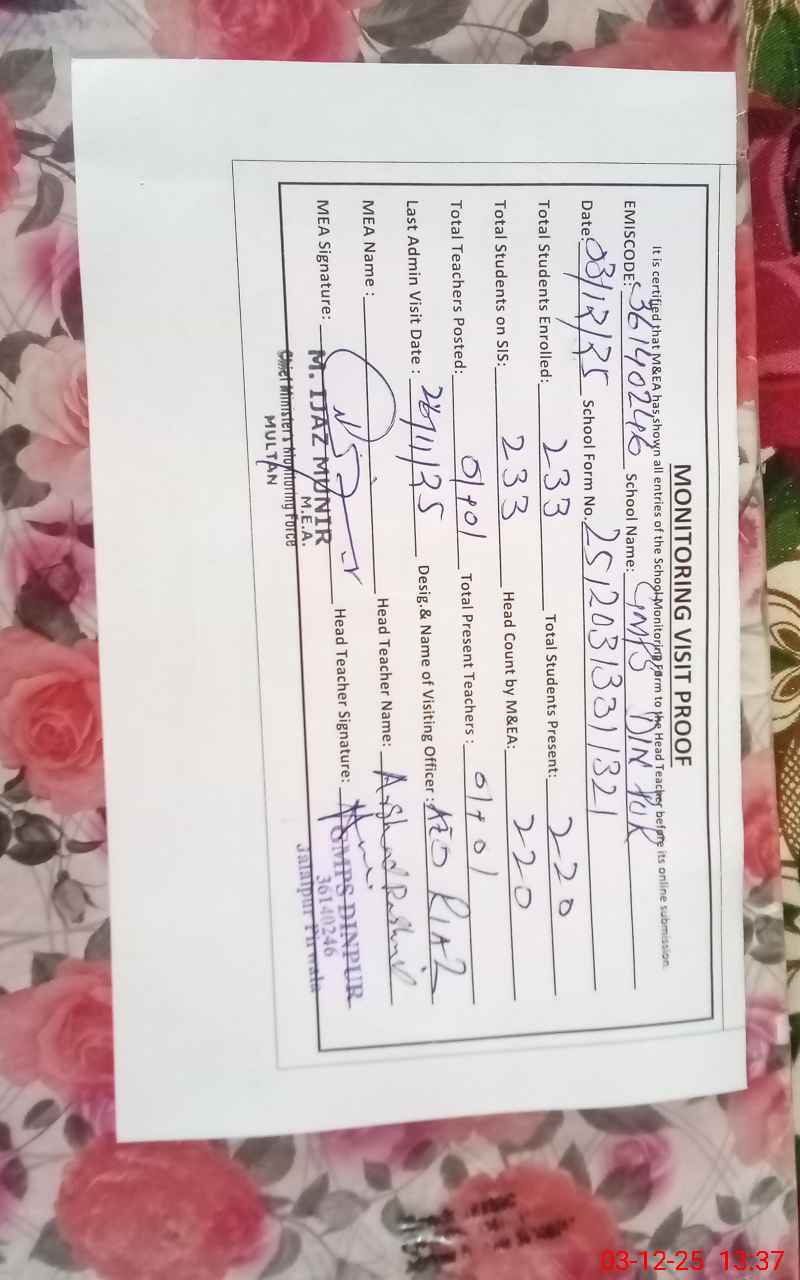 MONITORING VISIT PROOF
It is certified that M&EA has shown all entries of the School Monitoring Form to the Head Teacher before its online submission.
EMISCODE: 36140246 School Name: GMPS DIN PUR
Date: 03/12/25 School Form No. 25120313311321
Total Students Enrolled: 233 Total Students Present: 220
Total Students on SIS: 233 Head Count by M&EA: 220
Total Teachers Posted: 01+01 Total Present Teachers : 01+01
Last Admin Visit Date : 26/11/25 Desig.& Name of Visiting Officer : AEO RIAZ
MEA Name : Head Teacher Name: Arshad Rashid
MEA Signature: Head Teacher Signature:
M. IJAZ MUNIR
M.E.A.
Chief Minister's Monitoring Force
MULTAN
GMPS DINPUR
36140246
Jalalpur Pirwala
03-12-25 13:37